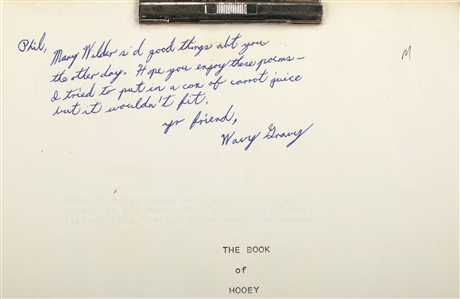 Phil,
Mary Wilder s'd good things abt you
the other day. Hope you enjoy these poems—
I tried to put in a can of carrot juice
but it wouldn't fit.
yr friend,
Wavy Gravy
M
THE BOOK
of
HOOEY